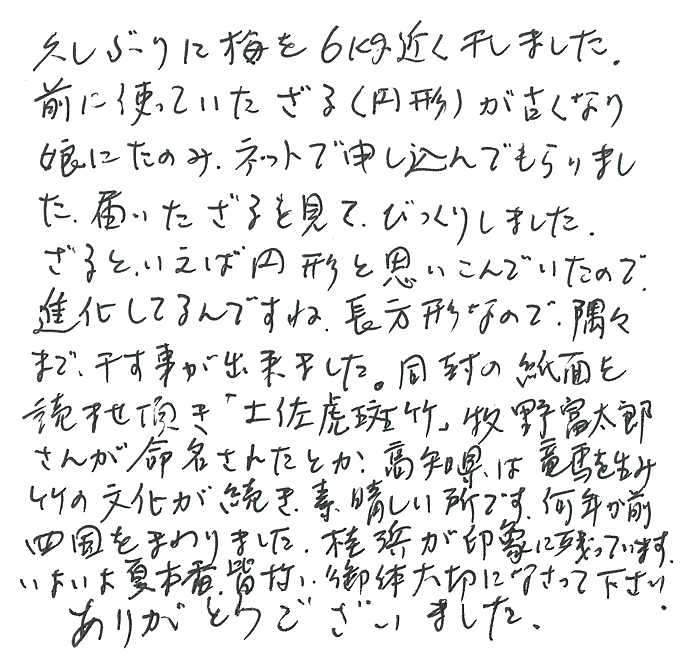 久しぶりに梅を6kg近く干しました。
前に使っていたざる(円形)が古くなり
娘にたのみ、ネットで申し込んでもらいまし
た、届いたざるを見て、びっくりしました。
ざると、いえば円形と思いこんでいたので、
進化してるんですね、長方形なので、隅々
まで、干す事が出来ました。同封の紙面を
読ませ頂き「土佐虎斑竹」牧野富太郎
さんが命名されたとか、高知県は竜馬を生み
竹の文化が続き、素晴しい所です、何年か前
四国をまわりました、桂浜が印象に残っています。
いよいよ夏本番、皆様、御体大切になさって下さい。
ありがとうございました。